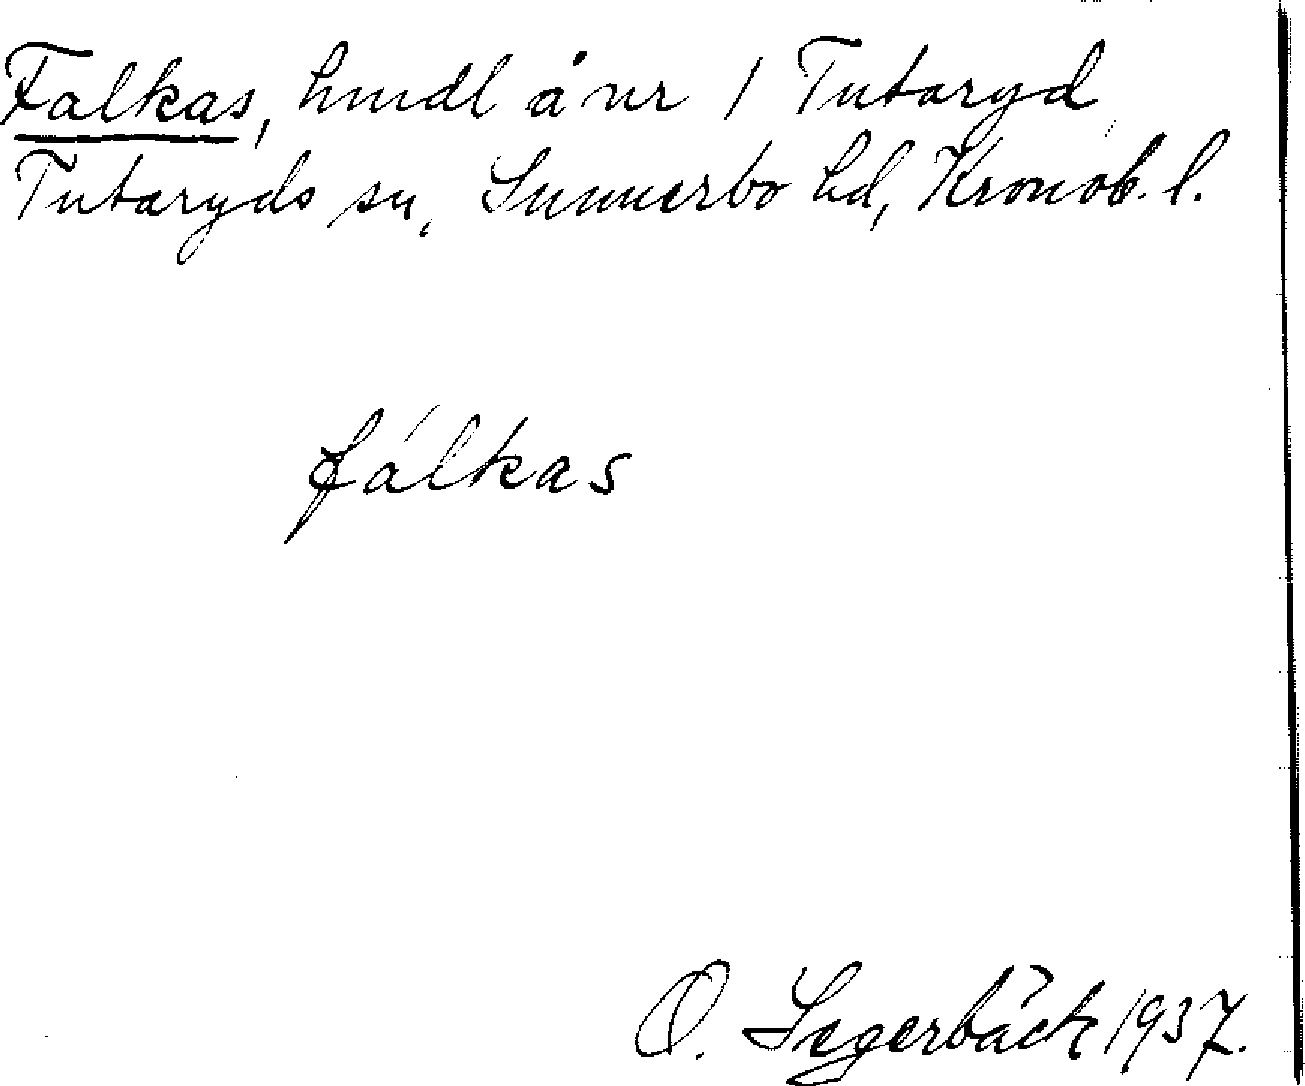 Falkas, hmdl å nr 1 Tutaryd,
Tutaryds sn, Sunnerbo hd, Kronob. l.
fálkas
O. Segerbäck 1937.